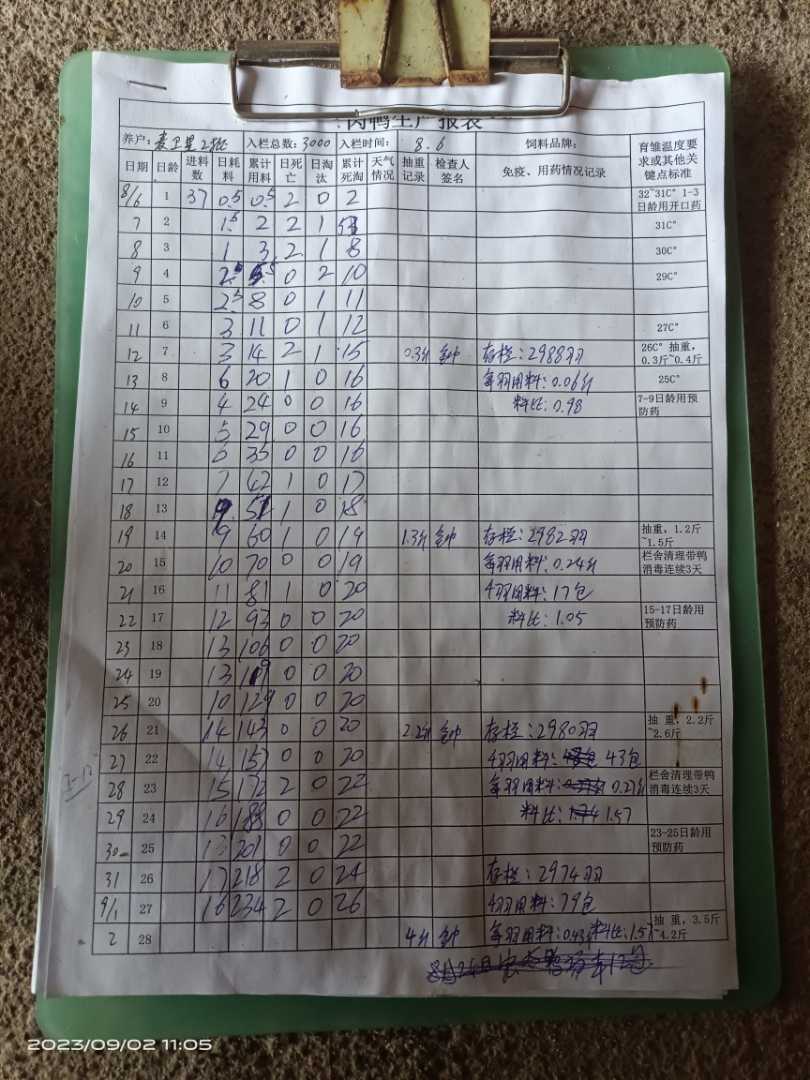 肉鸭生产报表
养户: 卫星2批 入栏总数: 3000 入栏时间: 8.6 饲料品牌: 育雏温度要求或其他关键点标准
日期 日龄 进料数 日耗料 累计用料 日死亡 日淘汰 累计死淘 天气情况 抽重记录 检查人签名 免疫、用药情况记录
8/6 1 37 0.5 0.5 2 0 2 32~31C° 1-3日龄用开口药
7 2 1.5 2 2 1 31C°
8 3 1 3 2 1 8 30C°
9 4 2.5 5.5 0 2 10 29C°
10 5 2.5 8 0 1 11
11 6 3 11 0 1 12 27C°
12 7 3 14 2 1 15 0.3斤 存栏:2988羽 26C° 抽重,0.3斤~0.4斤
13 8 6 20 1 0 16 每羽用料:0.06斤 25C°
14 9 4 24 0 0 16 料比:0.98 7-9日龄用预防药
15 10 5 29 0 0 16
16 11 6 35 0 0 16
17 12 7 42 1 0 17
18 13 9 51 1 0 18
19 14 9 60 1 0 19 1.3斤 存栏:2982羽 抽重,1.2斤~1.5斤
20 15 10 70 0 0 19 每羽用料:0.24斤 栏舍清理带鸭消毒连续3天
21 16 11 81 1 0 20 用料:17包
22 17 12 93 0 0 20 料比:1.05 15-17日龄用预防药
23 18 13 106 0 0 20
24 19 13 119 0 0 20
25 20 10 129 0 0 20
26 21 14 143 0 0 20 2.2斤 存栏:2980羽 抽重,2.2斤~2.6斤
27 22 14 157 0 0 20 用料: 43包
28 23 15 172 2 0 22 每羽用料: 0.27斤 栏舍清理带鸭消毒连续3天
29 24 16 188 0 0 22 料比: 1.57
30 25 13 201 0 0 22 23-25日龄用预防药
31 26 17 218 2 0 24 存栏:2974羽
9/1 27 16 234 2 0 26 用料:79包
2 28 4斤 每羽用料:0.43斤 料比:1.57 抽重,3.5斤~4.2斤
2023/09/02 11:05